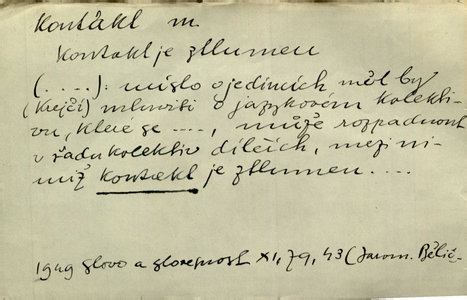 Kontakt m.
kontakt je ztlumen
(. . . .): místo o jedincích měl by
(Krejčí) mluviti o jazykovém kolekti-
vu, které se ...., může rozpadnout
v řadu kolektiv dílčích, mezi ni-
miž kontakt je ztlumen ....
1949 Slovo a slovesnost XI, 79, 43 (Jarom. Bělič.